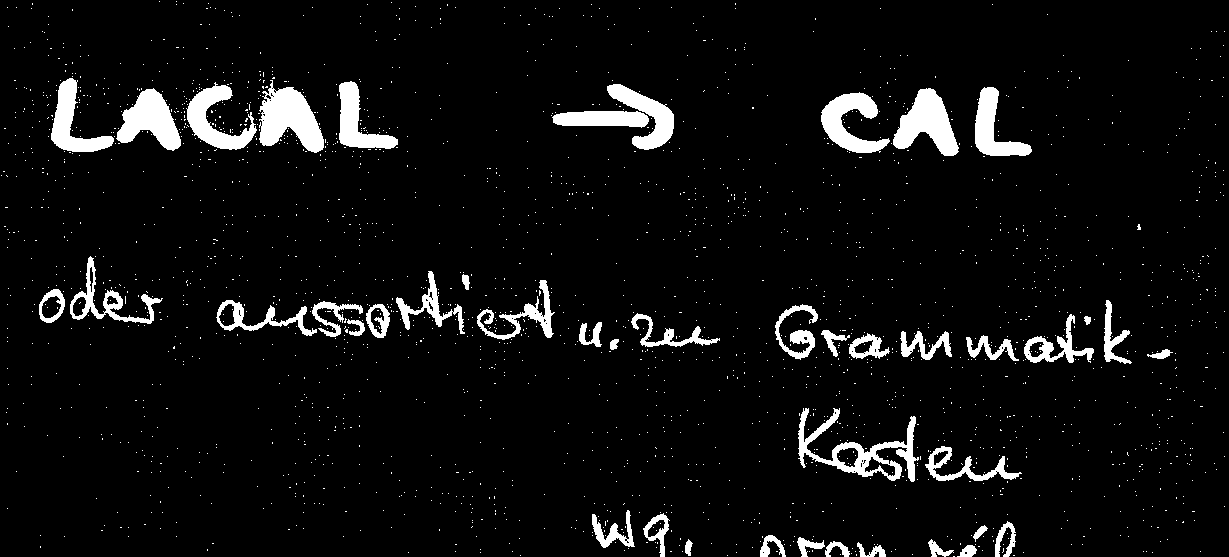 LACAL → CAL
oder aussortiert u. zu Grammatik-
Kasten
wg.